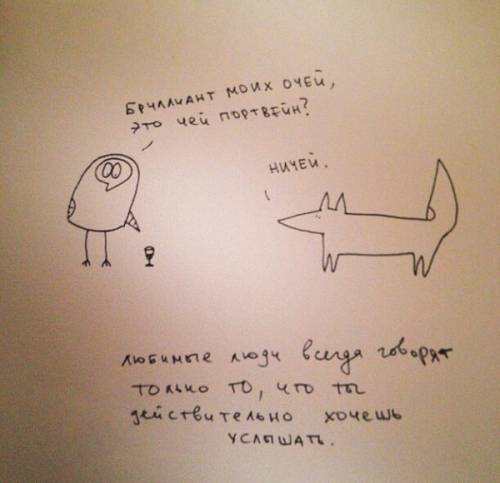 БРИЛЛИАНТ МОИХ ОЧЕЙ,
ЭТО ЧЕЙ ПОРТВЕЙН?
НИЧЕЙ.
любимые люди всегда говорят
только то, что ты
действительно хочешь
услышать.